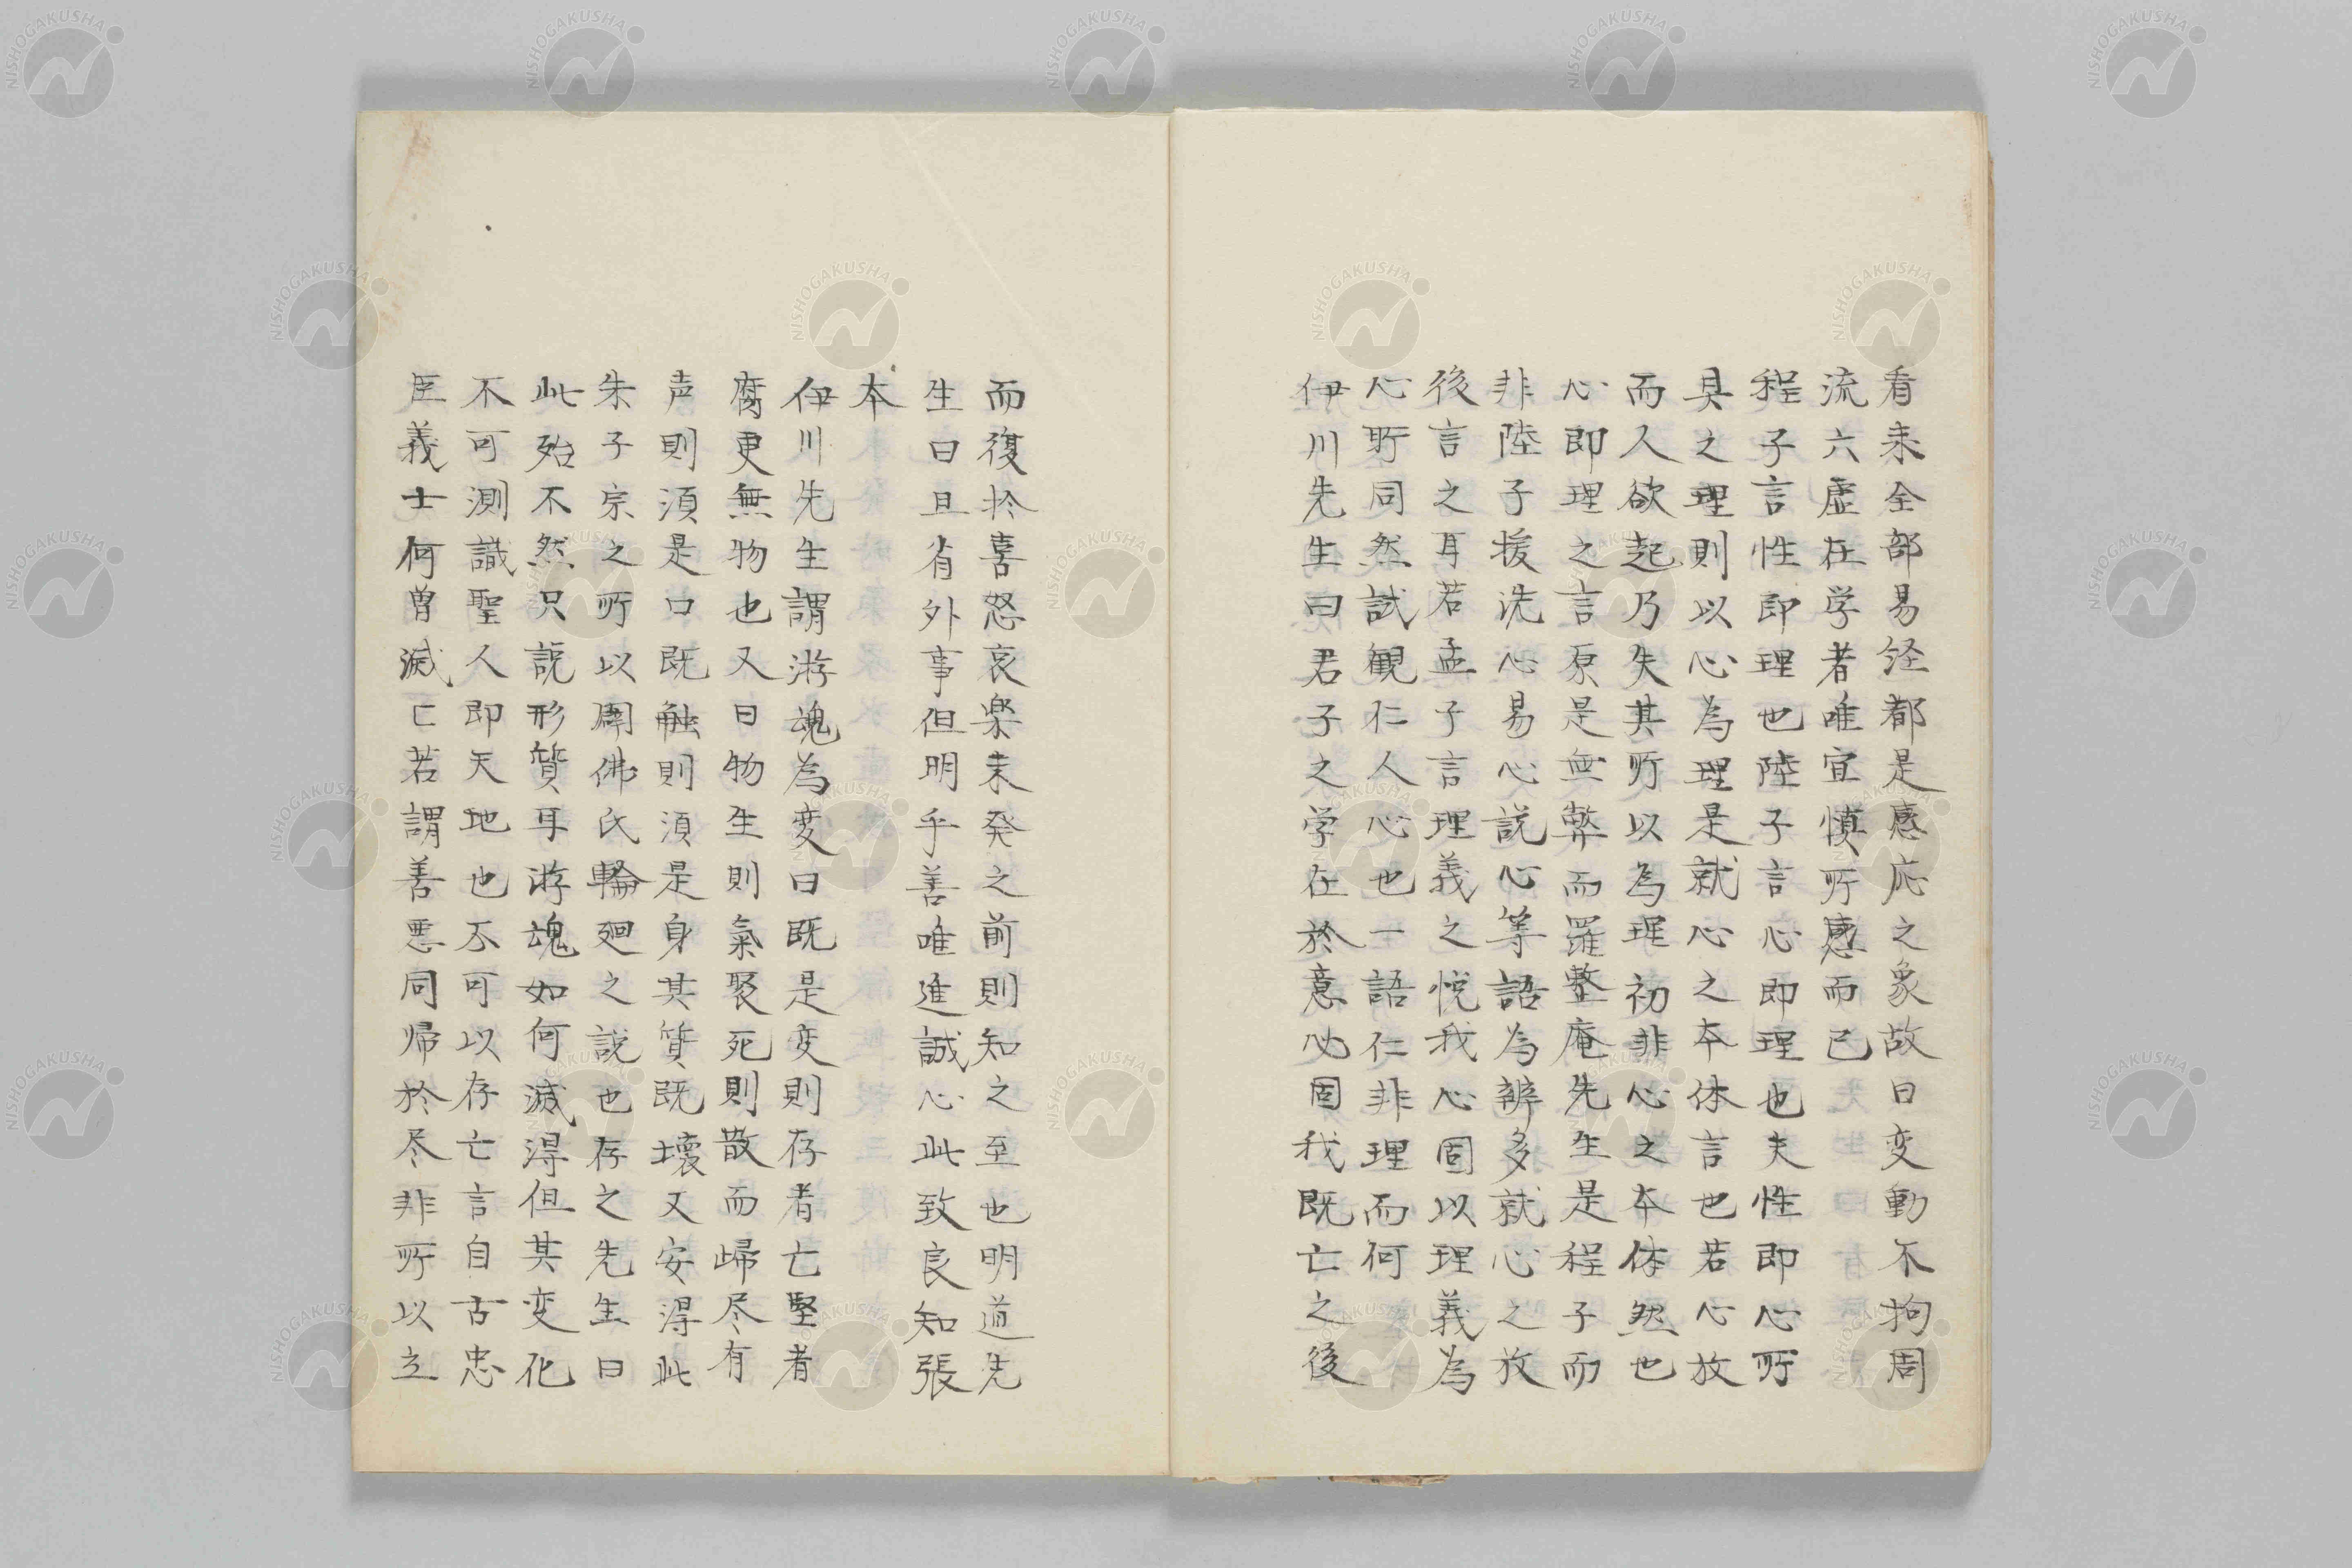 看来全部易経都是感応之象故曰変動不拘周
流六虚在学者唯宜慎所感而已
程子言性即理也陸子言心即理也夫性即心所
具之理則以心為理是就心之本体言也若心放
而人欲起乃失其所以為理初非心之本体然也
心即理之言原是無弊而羅整庵先生是程子而
非陸子援洗心易心説心等語為辨多就心之放
後言之耳若孟子言理義之悦我心固以理義為
心所同然試観仁人心也一語仁非理而何
伊川先生曰君子之学在於意必固我既亡之後
而復於喜怒哀楽未発之前則知之至也明道先
生曰且省外事但明乎善唯進誠心此致良知張
本
伊川先生謂游魂為変曰既是変則存者亡堅者
腐更無物也又曰物生則氣聚死則散而歸尽有
声則須是口既触則須是身其質既壊又安得此
朱子宗之所以闢佛氏輪廻之説也存之先生曰
此殆不然只説形質耳游魂如何滅得但其変化
不可測識聖人即天地也不可以存亡言自古忠
臣義士何曽滅亡若謂善悪同帰於尽非所以立
NISHOGAKUSHA